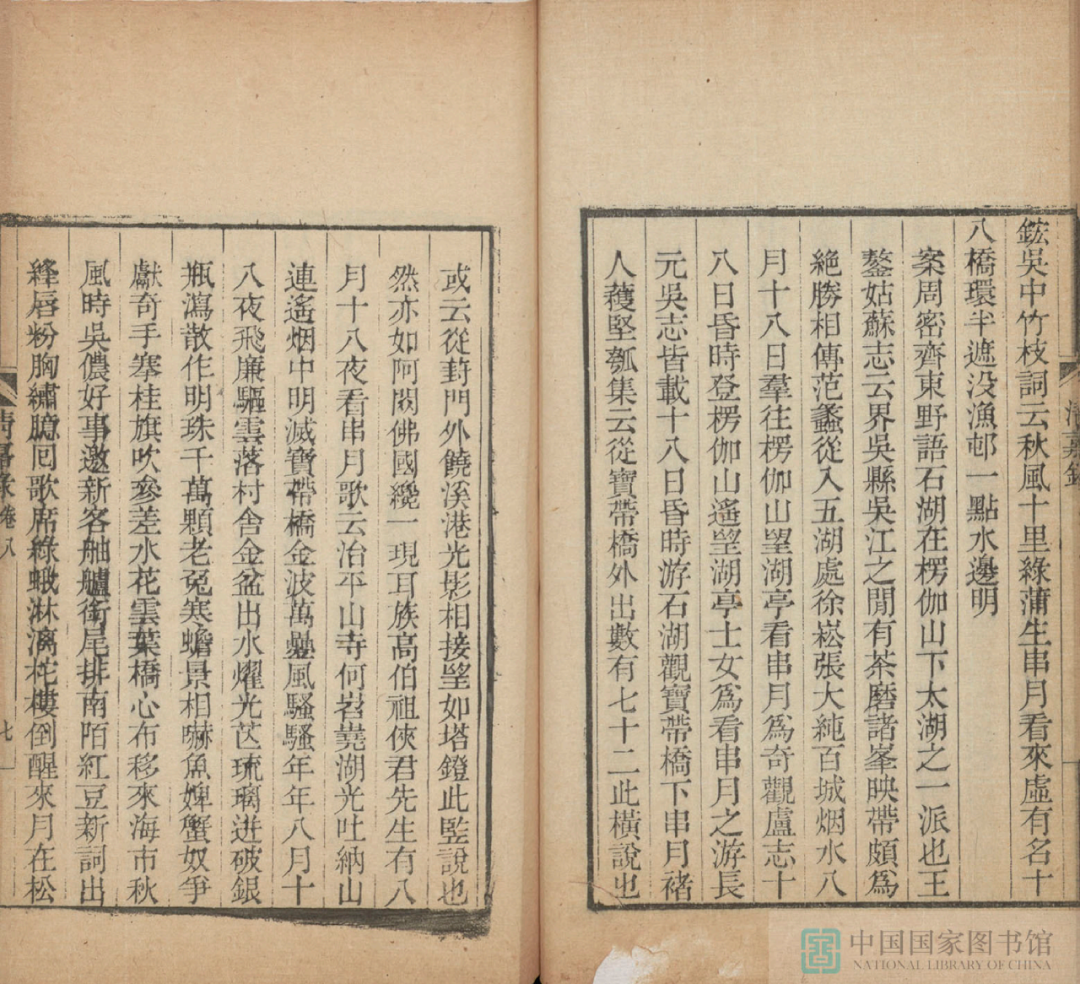 鋐吳中竹枝詞云秋風十里綠蒲生串月看來虛有名十
八橋環半遮没漁邨一點水邊明
案周密齊東野語石湖在楞伽山下太湖之一派也王
鏊姑蘇志云界吳縣吳江之閒有茶磨諸峯映帶頗爲
絶勝相傳范蠡從入五湖處徐崧張大純百城烟水八
月十八日羣往楞伽山望湖亭看串月爲奇觀盧志十
八日昏時登楞伽山遙望湖亭士女爲看串月之游長
元吳志皆載十八日昏時游石湖觀寶帶橋下串月褚
人穫堅瓠集云從寶帶橋外出數有七十二此橫說也
清嘉錄
或云從葑門外饒溪港光影相接望如塔鐙此監說也
然亦如阿閦佛國纔一現耳族高伯祖俠君先生有八
月十八夜看串月歌云治平山寺何岧嶤湖光吐納山
連遙烟中明滅寶帶橋金波萬疊風騷騷年年八月十
八夜飛廉驅雲落村舍金盆出水燿光芒琉璃迸破銀
瓶瀉散作明珠千萬顆老兔寒蟾景相嚇魚婢蟹奴爭
獻奇手搴桂旗吹參差水花雲葉橋心布移來海市秋
風時吳儂好事邀新客舳艫銜尾排南陌紅豆新詞出
絳唇粉胸繡臆回歌席綠蛾淋漓柁樓倒醒來月在松
清嘉錄卷八
七
中国国家图书馆
NATIONAL LIBRARY OF CHINA